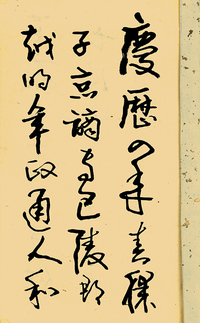 慶歷四年春滕
子京謫守巴陵郡
越明年政通人和